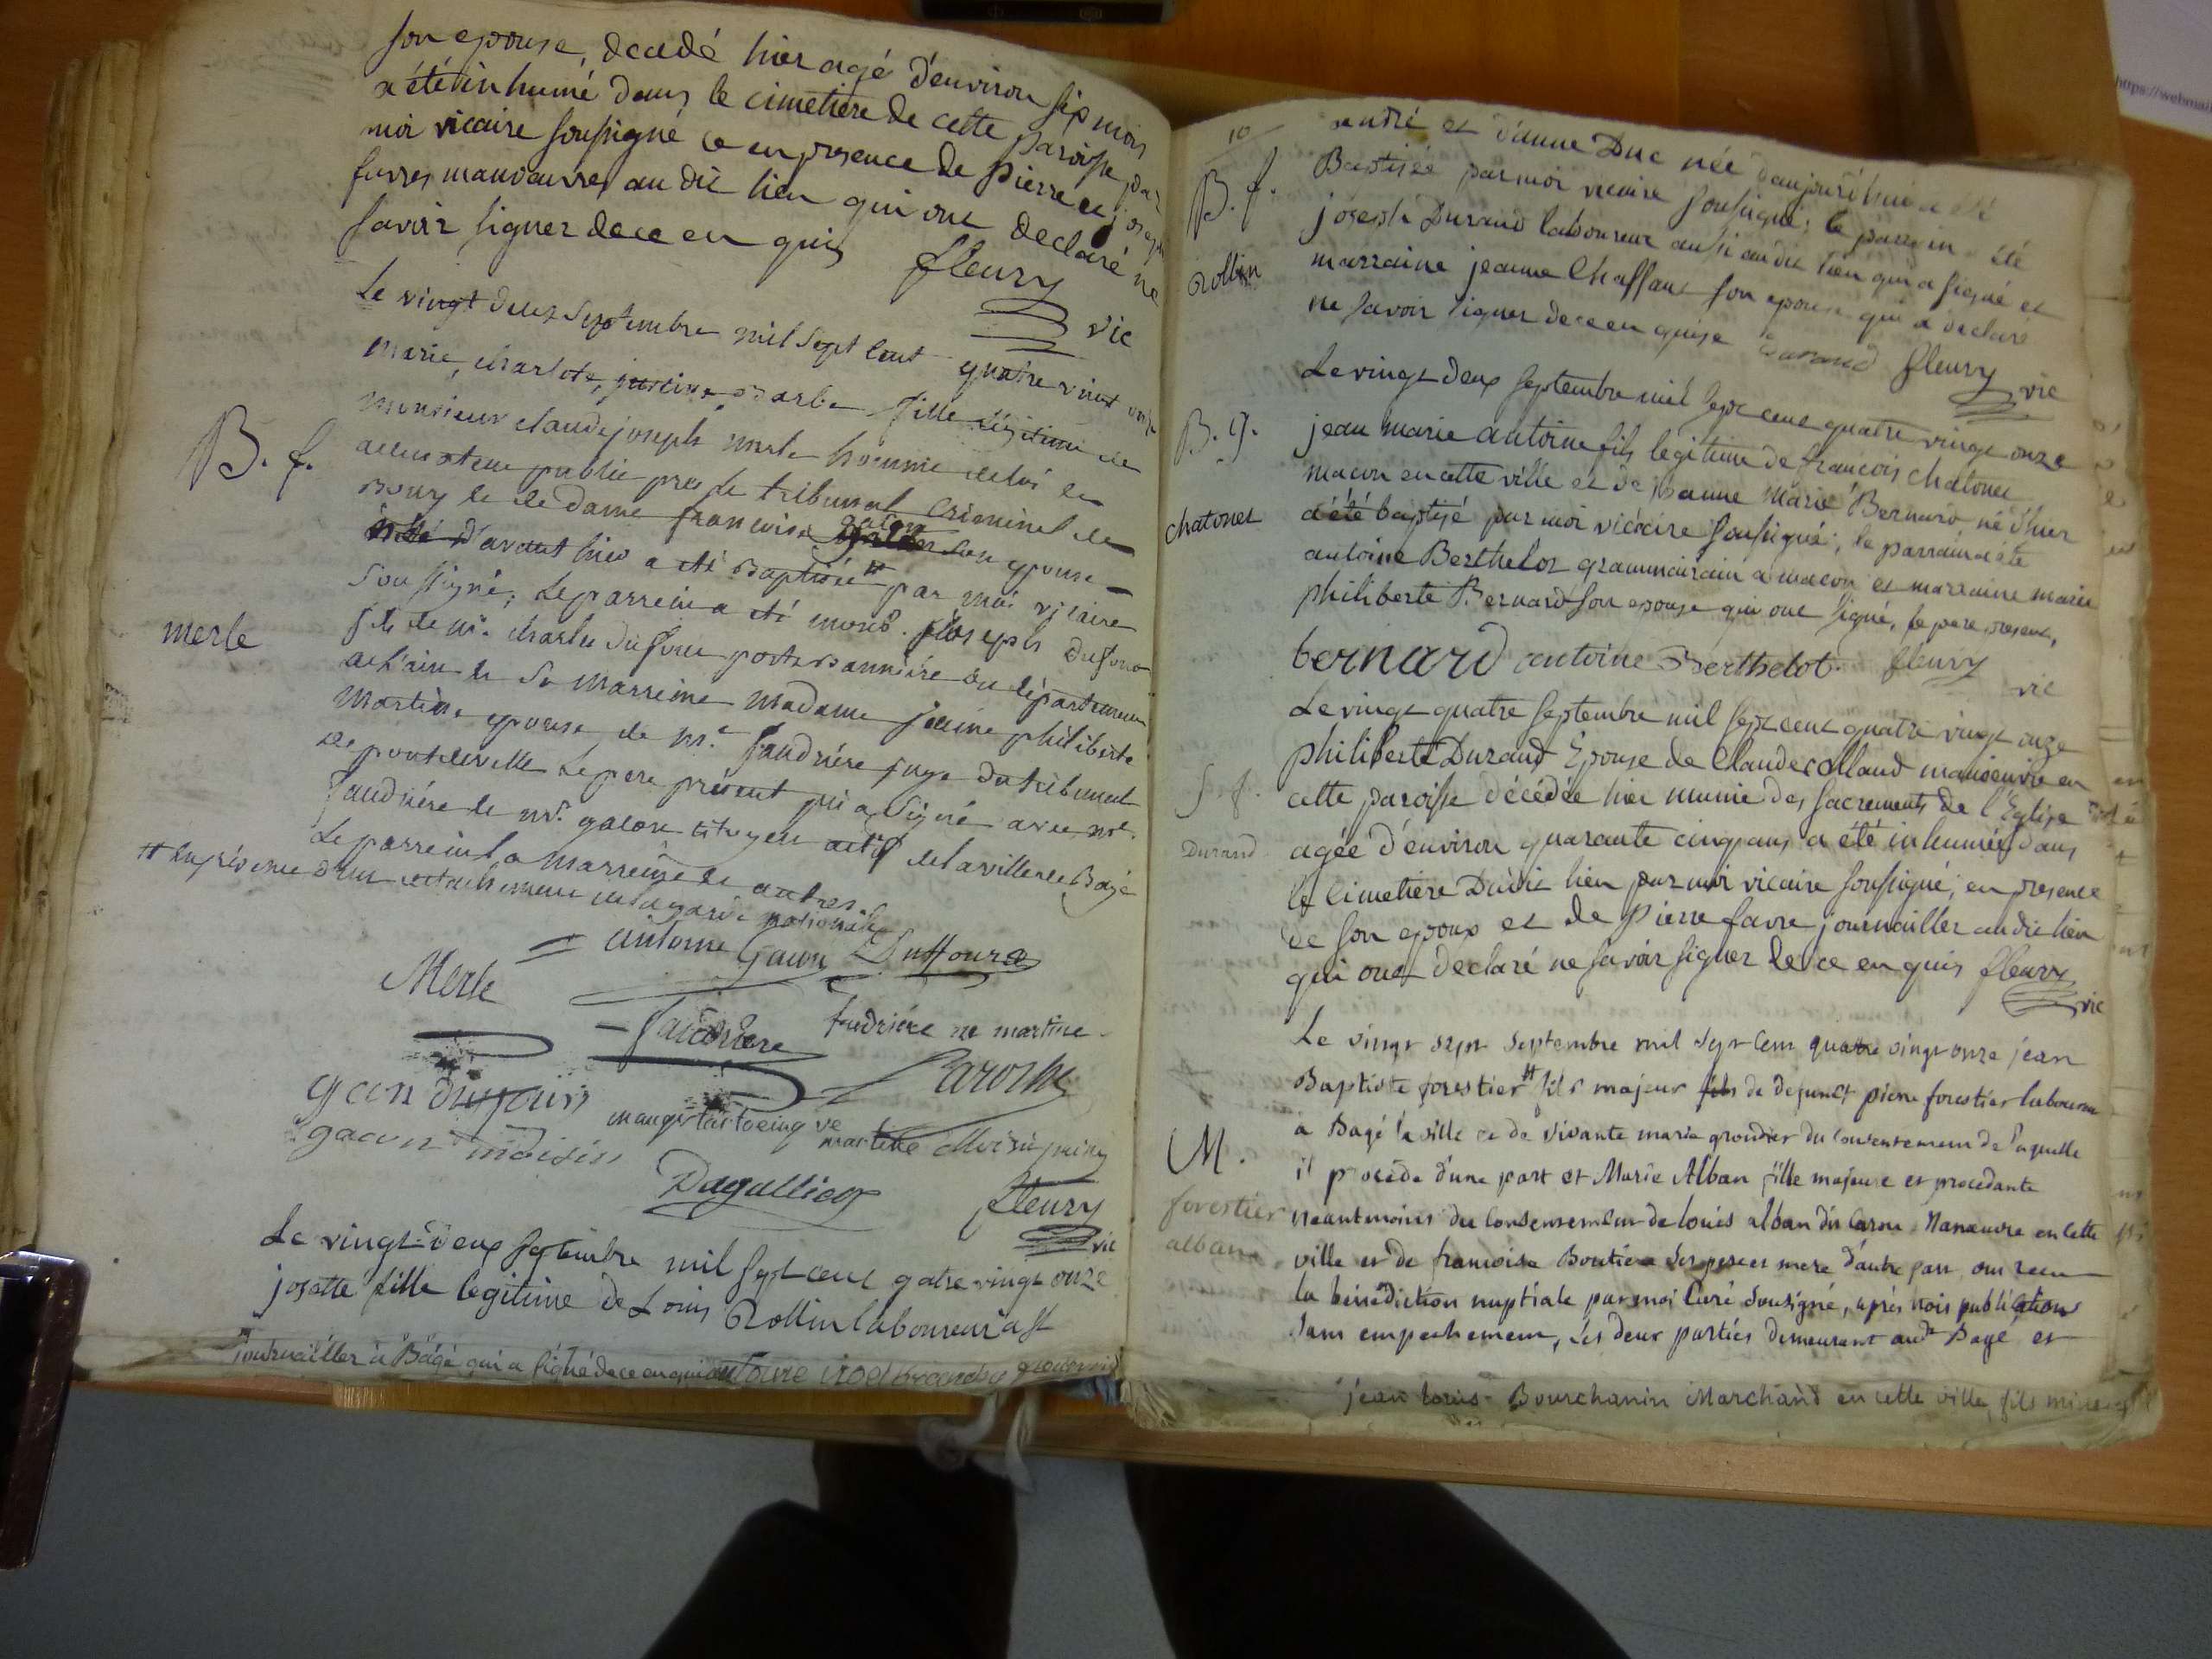 son epouse, decedé hier agé d'environ six mois
a été inhumé dans le cimetiere de cette paroisse par
moi vicaire soussigné ce en presence de pierre et joseph
favre, manoeuvres au dit lieu qui ont declaré ne
savoir signer de ce enquis fleury
vic
Le vingt deux septembre mil sept cent quatre vingt onze
marie, charlote, justine, barbe fille légitime de
monsieur claude joseph merle homme de loi et
accusateur public pres le tribunal criminel de
Bourg et de dame francoise gacon son epouse
d'avant hier a été baptisée # par moi vicaire
soussigné; Le parrein a été mons. joseph dufour
fils de mr. charles dufour porte bannière du département
de l'ain et sa marreine madame jeanne philiberte
martine epouse de mr. faudrière juge du tribunal
de pontdevelle Le pere présent qui a signé avec mr.
faudrière le mr. gacon citoyen actif de la ville de Bagé
Le parrein la marreine et autres.
# en présence d'un detachement de la garde nationale
B. f.
merle
antoine Gacon Duffour
Merle
faudriere
faudriére ne martine
Laroche
gacon
gacon
martine
Dagallier
fleury
vic
Le vingt-deux septembre mil sept cent quatre vingt onze
josette fille legitime de Louis Rollin laboureur a st
journailler à Bâgé qui a signé de ce enquis antoine
10
andré et d'anne Duc née d'aujourd'hui a été
Baptisée par moi vicaire soussigné; le parrein été
joseph Durand laboureur aussi au dit lieu qui a signé et
marraine jeanne Chaffaut son epouse qui a declaré
ne savoir signer de ce enquise Durand fleury
vic
B. f.
Rollin
Le vingt deux septembre mil sept cent quatre vingt onze
jean marie antoine fils legitime de francois chatonet
macon en cette ville et de jeanne Marie Bernard né d'hier
a été baptisé par moi vicaire soussigné; le parrain a été
antoine Berthelot grammairain a macon et marraine marie
philiberte Bernard son epouse qui ont signé, le pere present,
B. g.
chatonet
bernard antoine Berthelot. fleury
vic
Le vingt quatre septembre mil sept cent quatre vingt onze
philiberte Durand Epouse de Claude collaud manoeuvre en
cette paroisse décédée hier munie des sacrements de l'Eglise
agée d'environ quarante cinq ans a été inhumée dans
le Cimetiere Dudit lieu par moi vicaire soussigné, en presence
de son epoux et de pierre favre journailler au dit lieu
qui ont declaré ne savoir signer de ce enquis fleury
vic
S f.
Durand
Le vingt sept septembre mil sept cent quatre vingt onze jean
Baptiste forestier # fils majeur fils de defunct pierre forestier laboureur
à Bagé la ville et de vivante marie grondier du consentement de laquelle
il procède d'une part et Marie Alban fille majeure et procedante
neantmoins du consentement de louis alban dit Carou Manœuvre en cette
ville et de francoise Boutiere ses pere et mere d'autre part ont recu
la bénédiction nuptiale par moi Curé Sousigné, après trois publications
sans empechement, les deux parties demeurant audt Bagé et
M.
forestier
alban
jean louis Bourchanin Marchand en cette ville, fils mineur